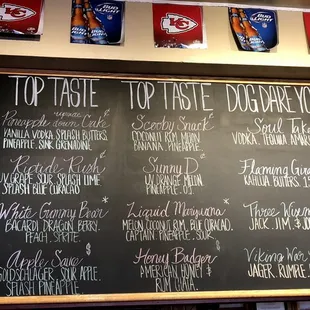 BUD LIGHT
KC
BUD LIGHT
KC
BUD LIGHT
TOP TASTE
Pineapple upside down Cake
VANILLA VODKA, SPLASH BUTTERS,
PINEAPPLE, SINK GRENADINE.
Riptide Rush
UV GRAPE, SOUR, SPLASH LIME
SPLASH BLUE CURACAO.
White Gummy Bear
BACARDI DRAGON BERRY,
PEACH, SPRITE.
Apple Sauce
GOLDSCHLAGER, SOUR APPLE,
SPLASH PINEAPPLE.
TOP TASTE
Scooby Snack
COCONUT RUM, MELON,
BANANA, PINEAPPLE.
Sunny D
UV ORANGE, MELON,
PINEAPPLE, MIST
Liquid Marijuana
MELON, COCONUT RUM, BLUE CURACAO,
CAPTAIN, PINEAPPLE, SOUR.
Honey Badger
AMERICAN HONEY &
RUM CHATA.
DOG DARE YO
Soul Take
VODKA, TEQUILA, AMARE
Flaming Gira
KAHLUA, BUTTERS, 15
Three Wisem
JACK, JIM, & JO
Viking War S
JAGER, RUMPLE,